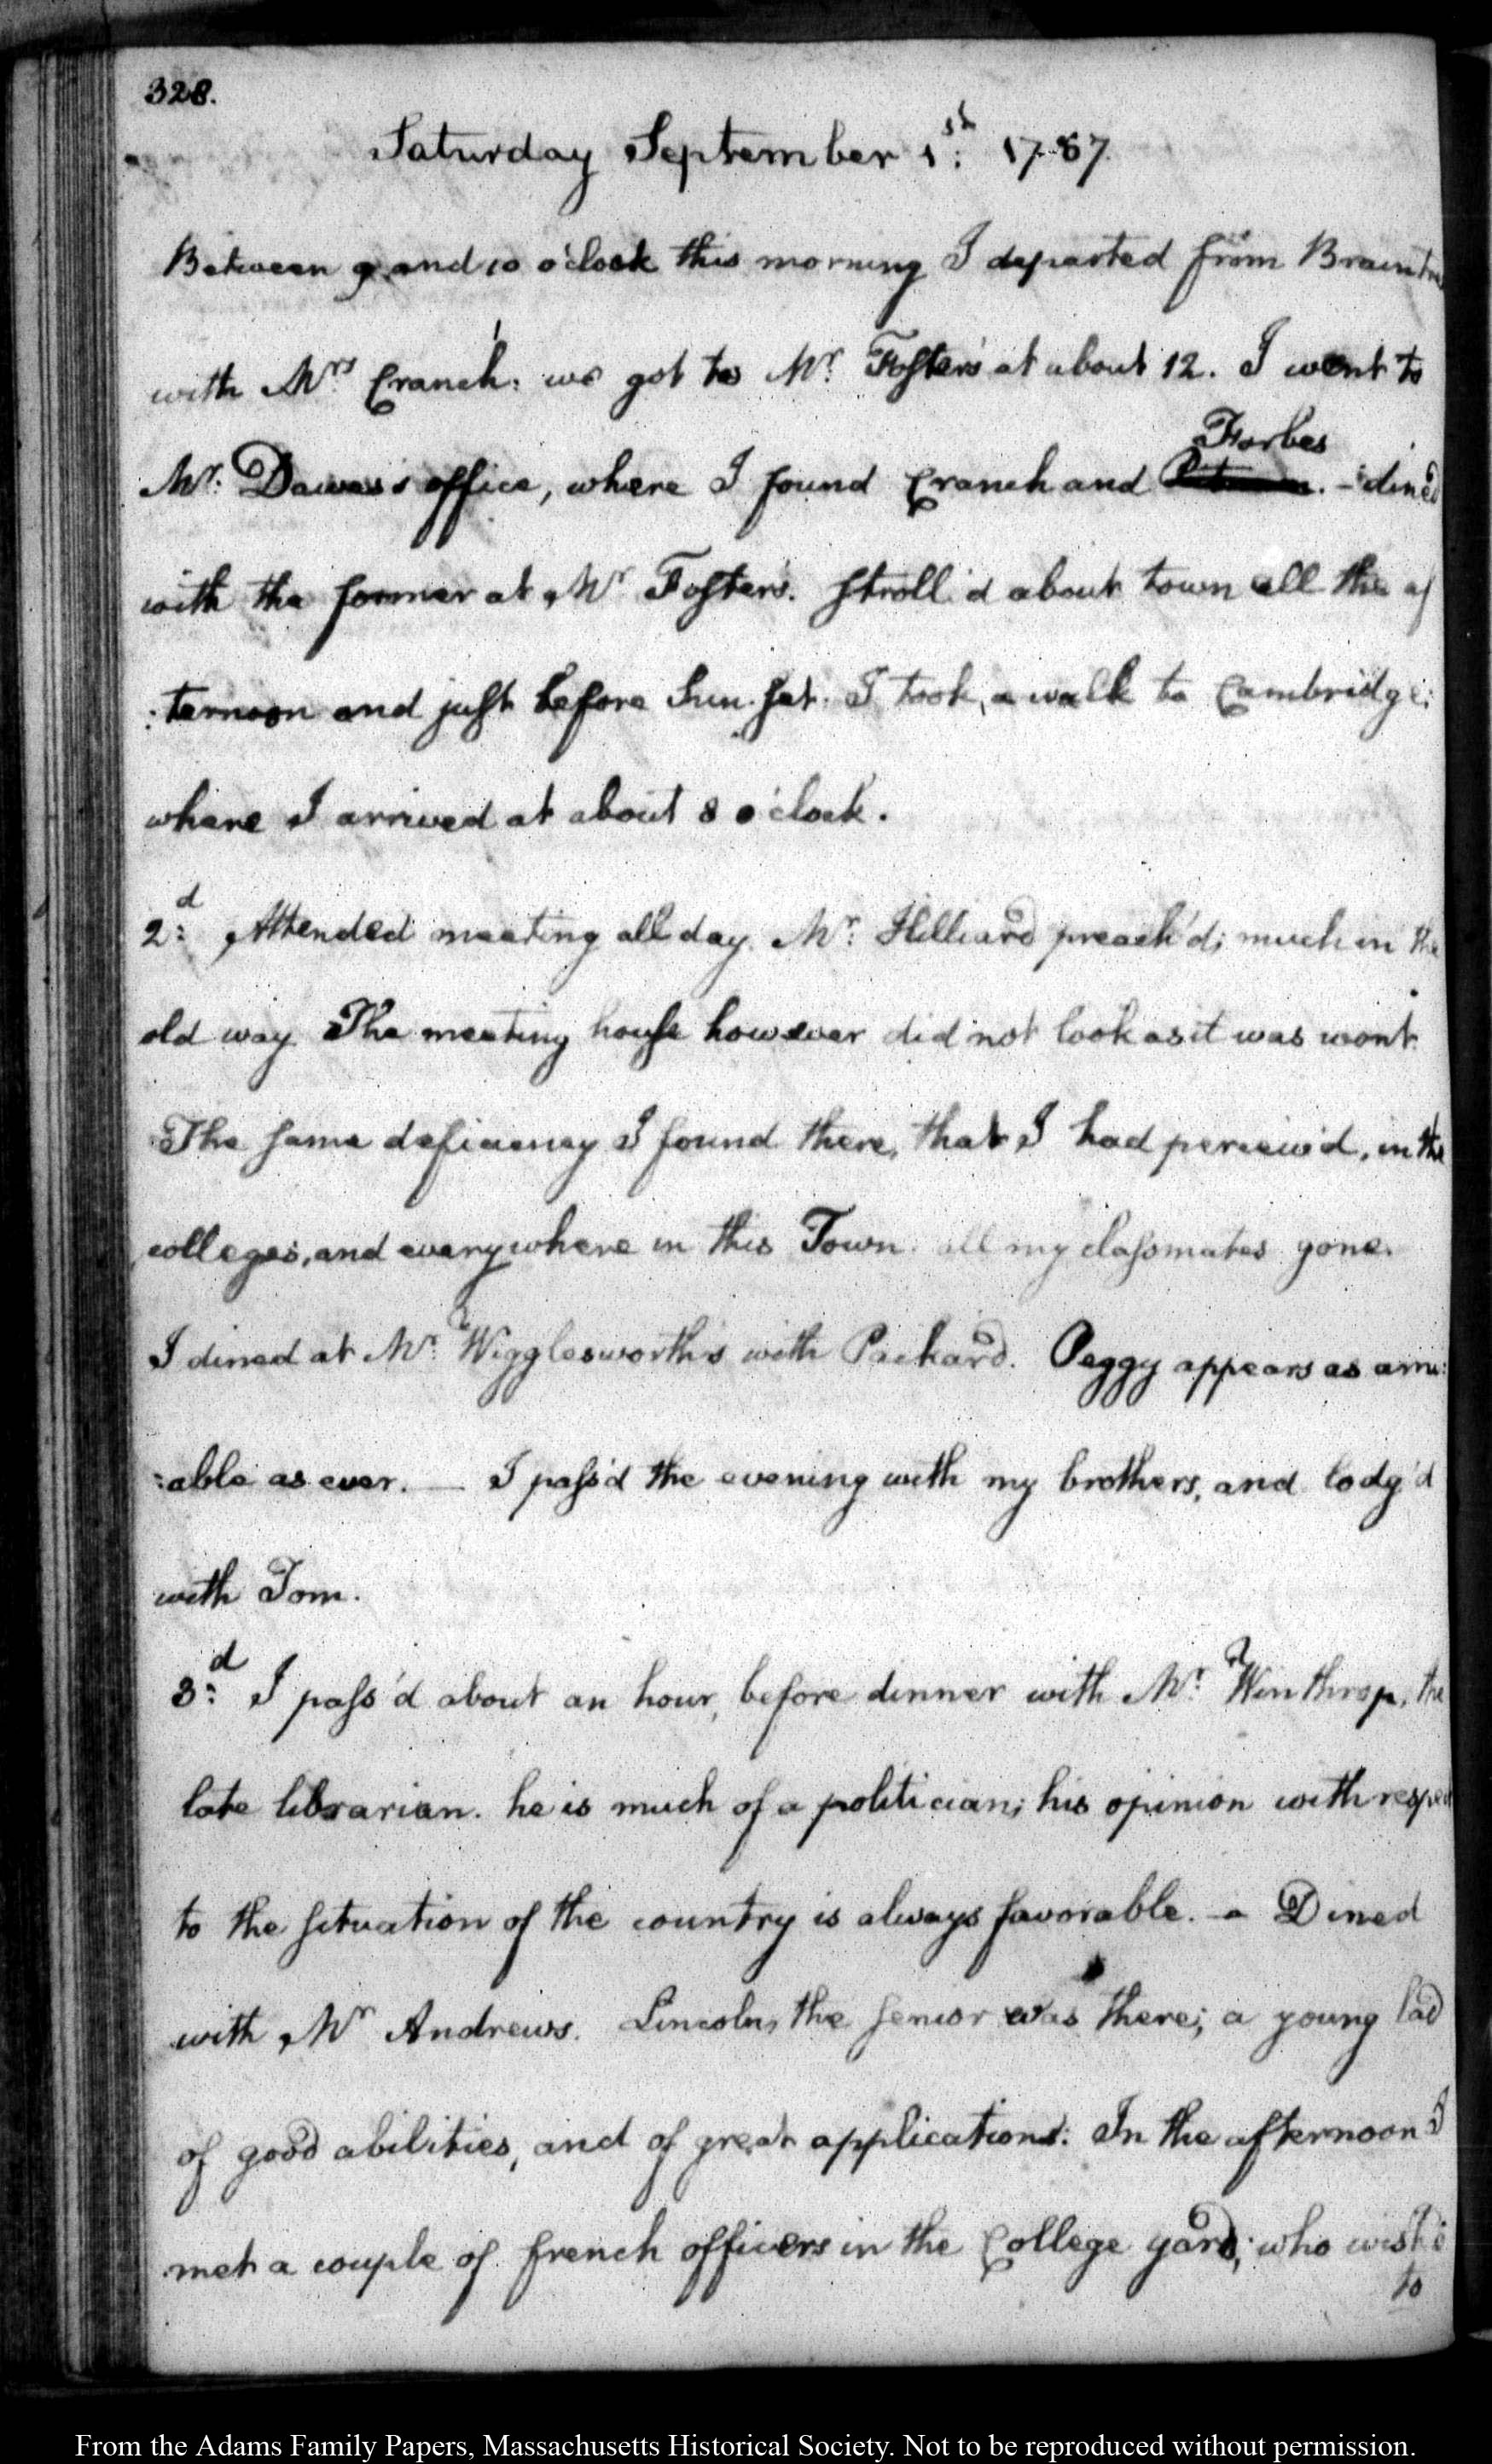 328.
Saturday September 1st: 1787.
Between 9 and 10 o'clock this morning I departed from Braintree
with Mrs Cranch: we got to Mr. Foster's at about 12. I went to
Forbes
Mr: Dawes's office, where I found Cranch and . — dined
with the former at Mr Foster's. Stroll'd about town all the af
:ternoon and just before Sun. set. I took, a walk to Cambridge:
where I arrived at about 8 o'clock.
2d: Attended meeting all day. Mr: Hilliard preach'd; much in the
old way. The meeting house however did not look as it was wont.
The same deficiency I found there, that I had perceiv'd, in the
colleges, and everywhere in this Town. all my classmates gone.
I dined at Mr: Wigglesworth's with Packard. Peggy appears as ami:
:able as ever. — I pass'd the evening with my brothers, and lodg'd
with Tom.
3d: I pass'd about an hour, before dinner with Mr: Winthrop, the
late librarian. he is much of a politician; his opinion with respect
to the situation of the country is always favorable. — Dined
with Mr Andrews. Lincoln, the senior was there; a young lad
of good abilities, and of great application: In the afternoon I
met a couple of french officers in the College yard; who wish'd
to
From the Adams Family Papers, Massachusetts Historical Society. Not to be reproduced without permission.